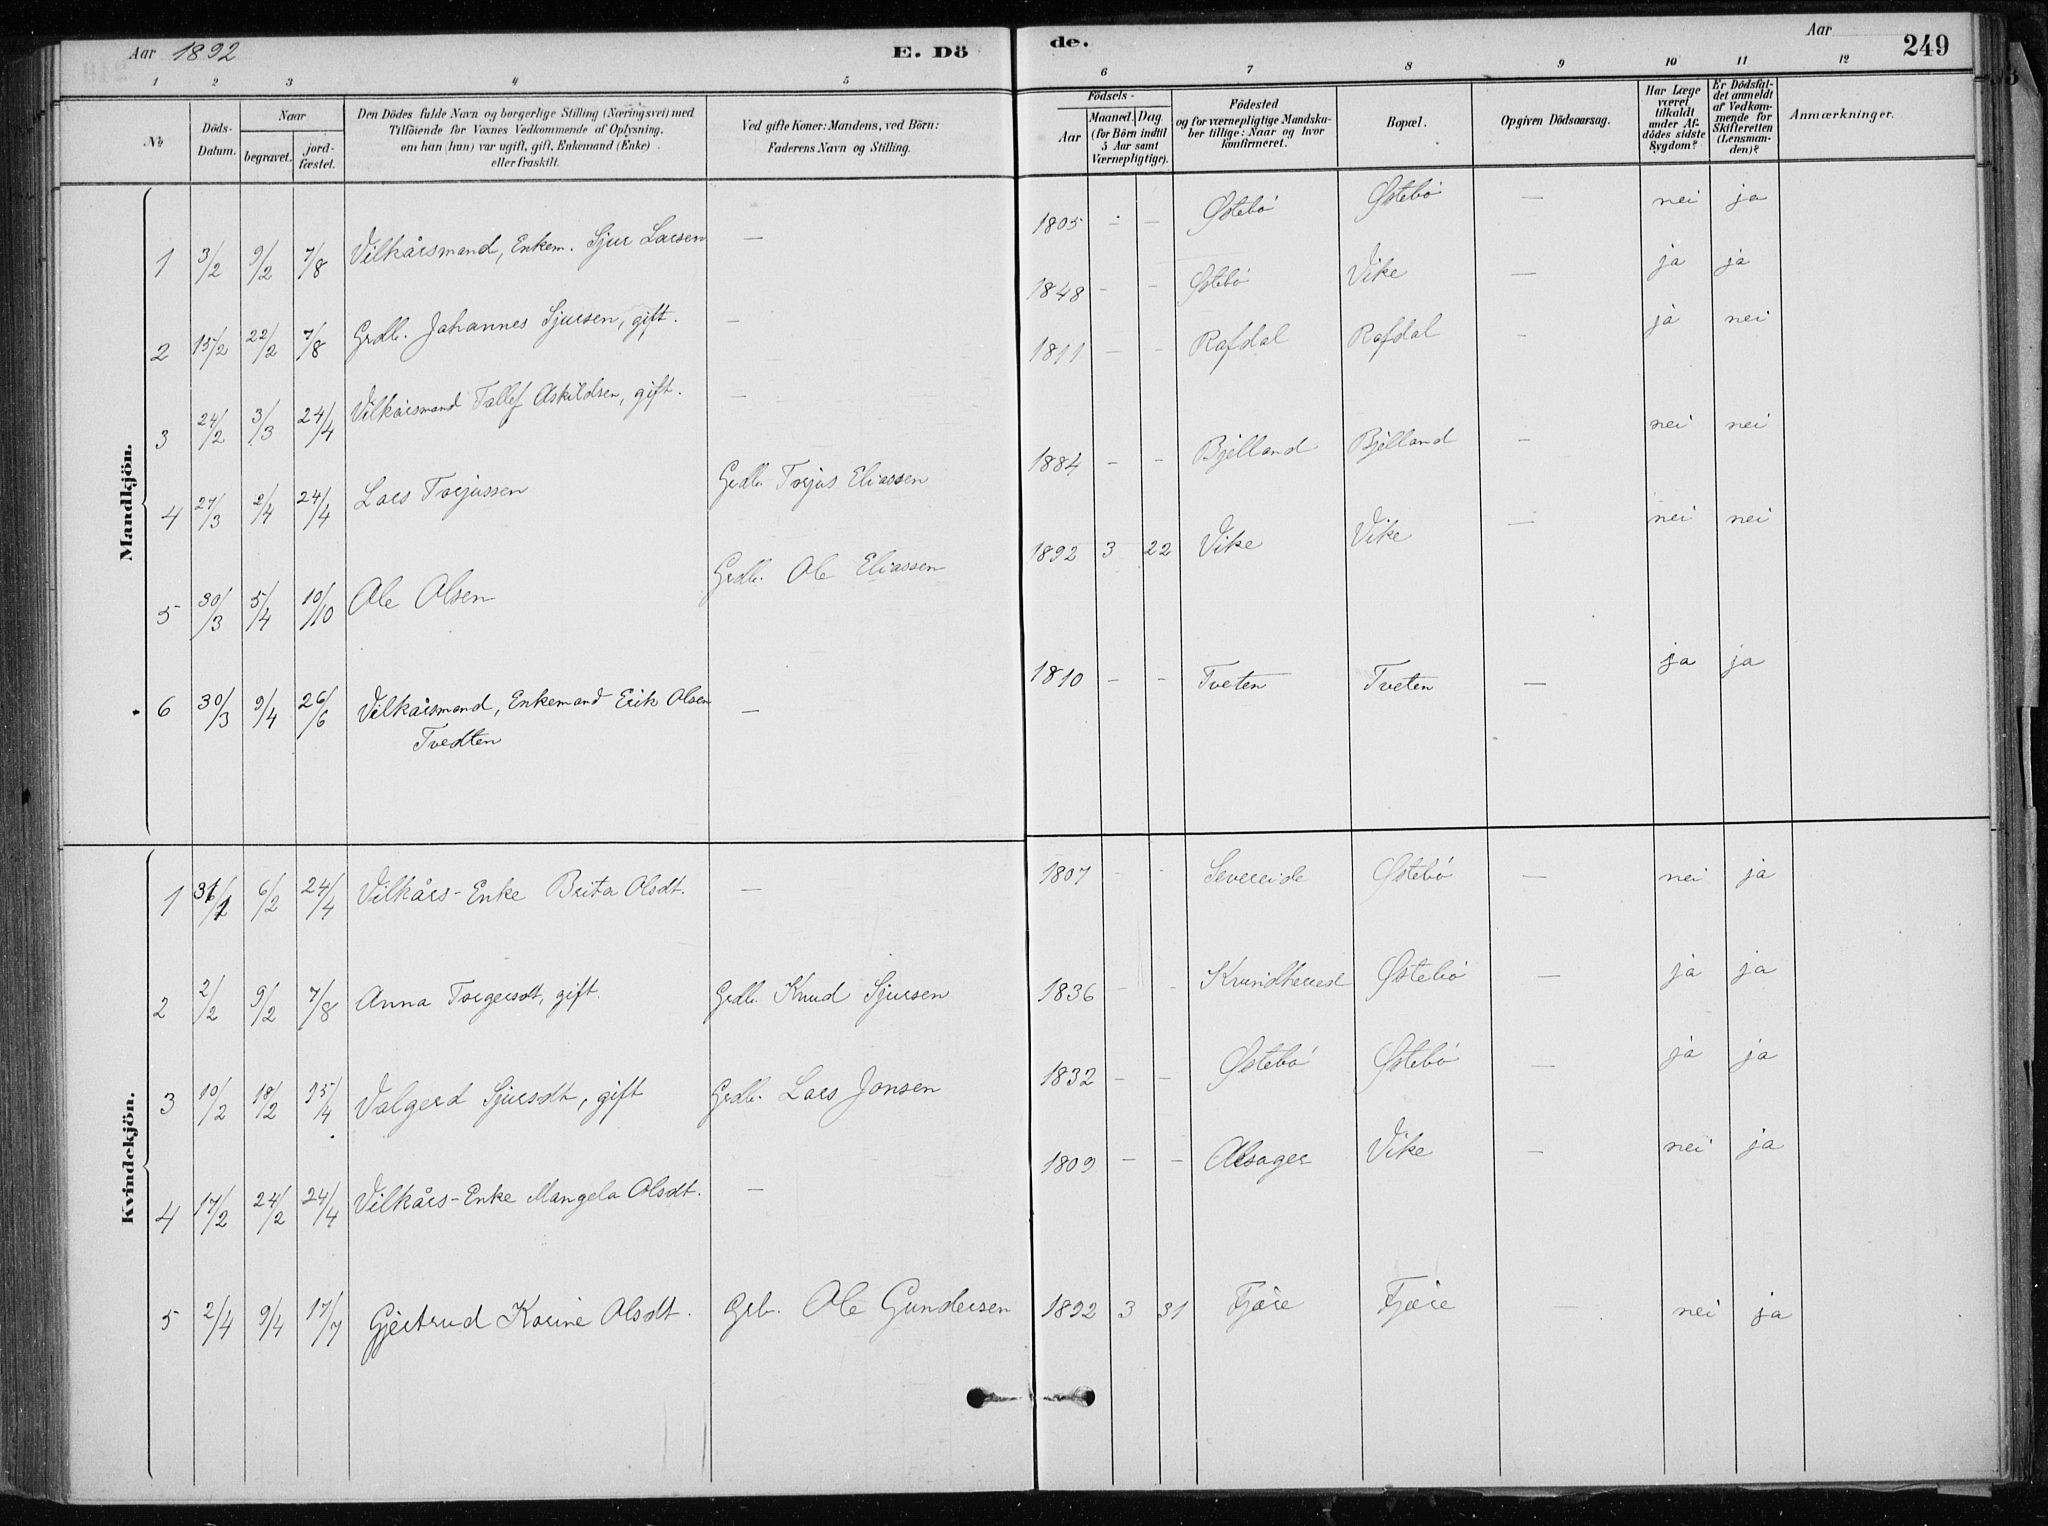 Aar 1892 E. Dö de. Aar 249
1 2 3 4 5 6 7 8 9 10 11 12
No
Döds-Datum.
Naar
begravet.
jord-fæstet.
Den Dödes fulde Navn og borgerlige Stilling (Næringsvei) med
Tilföiende for Voxnes Vedkommende af Oplysning,
om han (hun) var ugift, gift, Enkemand (Enke)
eller fraskilt.
Ved gifte Koner: Mandens, ved Börn:
Faderens Navn og Stilling.
Födsels-
Aar
Maaned. Dag.
(for Börn indtil
5 Aar samt
Værnepligtige).
Födested
og for værnepligtige Mandska-
ber tillige: Naar og hvor
konfirmeret.
Bopæl.
Opgiven Dödsaarsag.
Har Læge
været
tilkaldt
under Af-
dödes sidste
Sygdom?
Er Dödsfal-
det anmeldt
af Vedkom-
mende for
Skifteretten
(Lensman-
den)?
Anmærkninger.
Mandkjön.
1 3/2 9/2 7/8 Vilkårsmand, Enkem. Sjur Larsen — 1805 - - Østebö Østebö — nei ja
2 15/2 22/2 7/8 Grdb. Johannes Sjursen, gift. — 1848 - - Østebö Vike — ja ja
3 24/2 3/3 24/4 Vilkårsmand Tallef Askildsen, gift. — 1811 - - Rafdal Rafdal - ja nei
4 27/3 2/4 24/4 Lars Torjussen Grdb. Torjus Eliassen 1884 - - Bjelland Bjelland - nei nei
5 30/3 5/4 10/10 Ole Olsen Grdb. Ole Eliassen 1892 3 22 Vike Vike — nei nei
6 30/3 9/4 26/6 Vilkårsmand, Enkemand Erik Olsen — 1810 - - Tveten Tveten — ja ja
Tvedten
Kvindekjön.
1 31/1 6/2 24/4 Vilkårs-Enke Brita Olsdt. — 1807 - - Severeide Østebö — nei ja
2 2/2 9/2 7/8 Anna Torgersdt, gift. Grdb. Knud Sjursen 1836 - - Kvindherred Østebö — ja ja
3 10/2 18/2 25/4 Valgerd Sjursdt, gift Grdb. Lars Jonsen 1832 - - Østebö Østebö — ja ja
4 17/2 24/2 24/4 Vilkårs-Enke Mangela Olsdt. — 1809 - - Alsager Vike — nei ja
5 2/4 9/4 17/7 Gjertrud Karine Olsdt. Grb. Ole Gundersen 1892 3 31 Fjære Fjære — nei ja